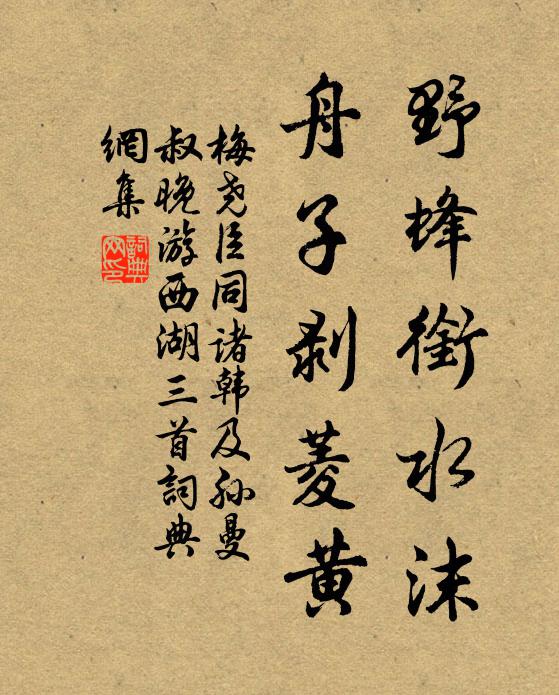 野蜂銜水沫
舟子剥菱黄
梅尧臣同诸韩及孙曼
叔晚游西湖三首詞典
網集
詞典網印